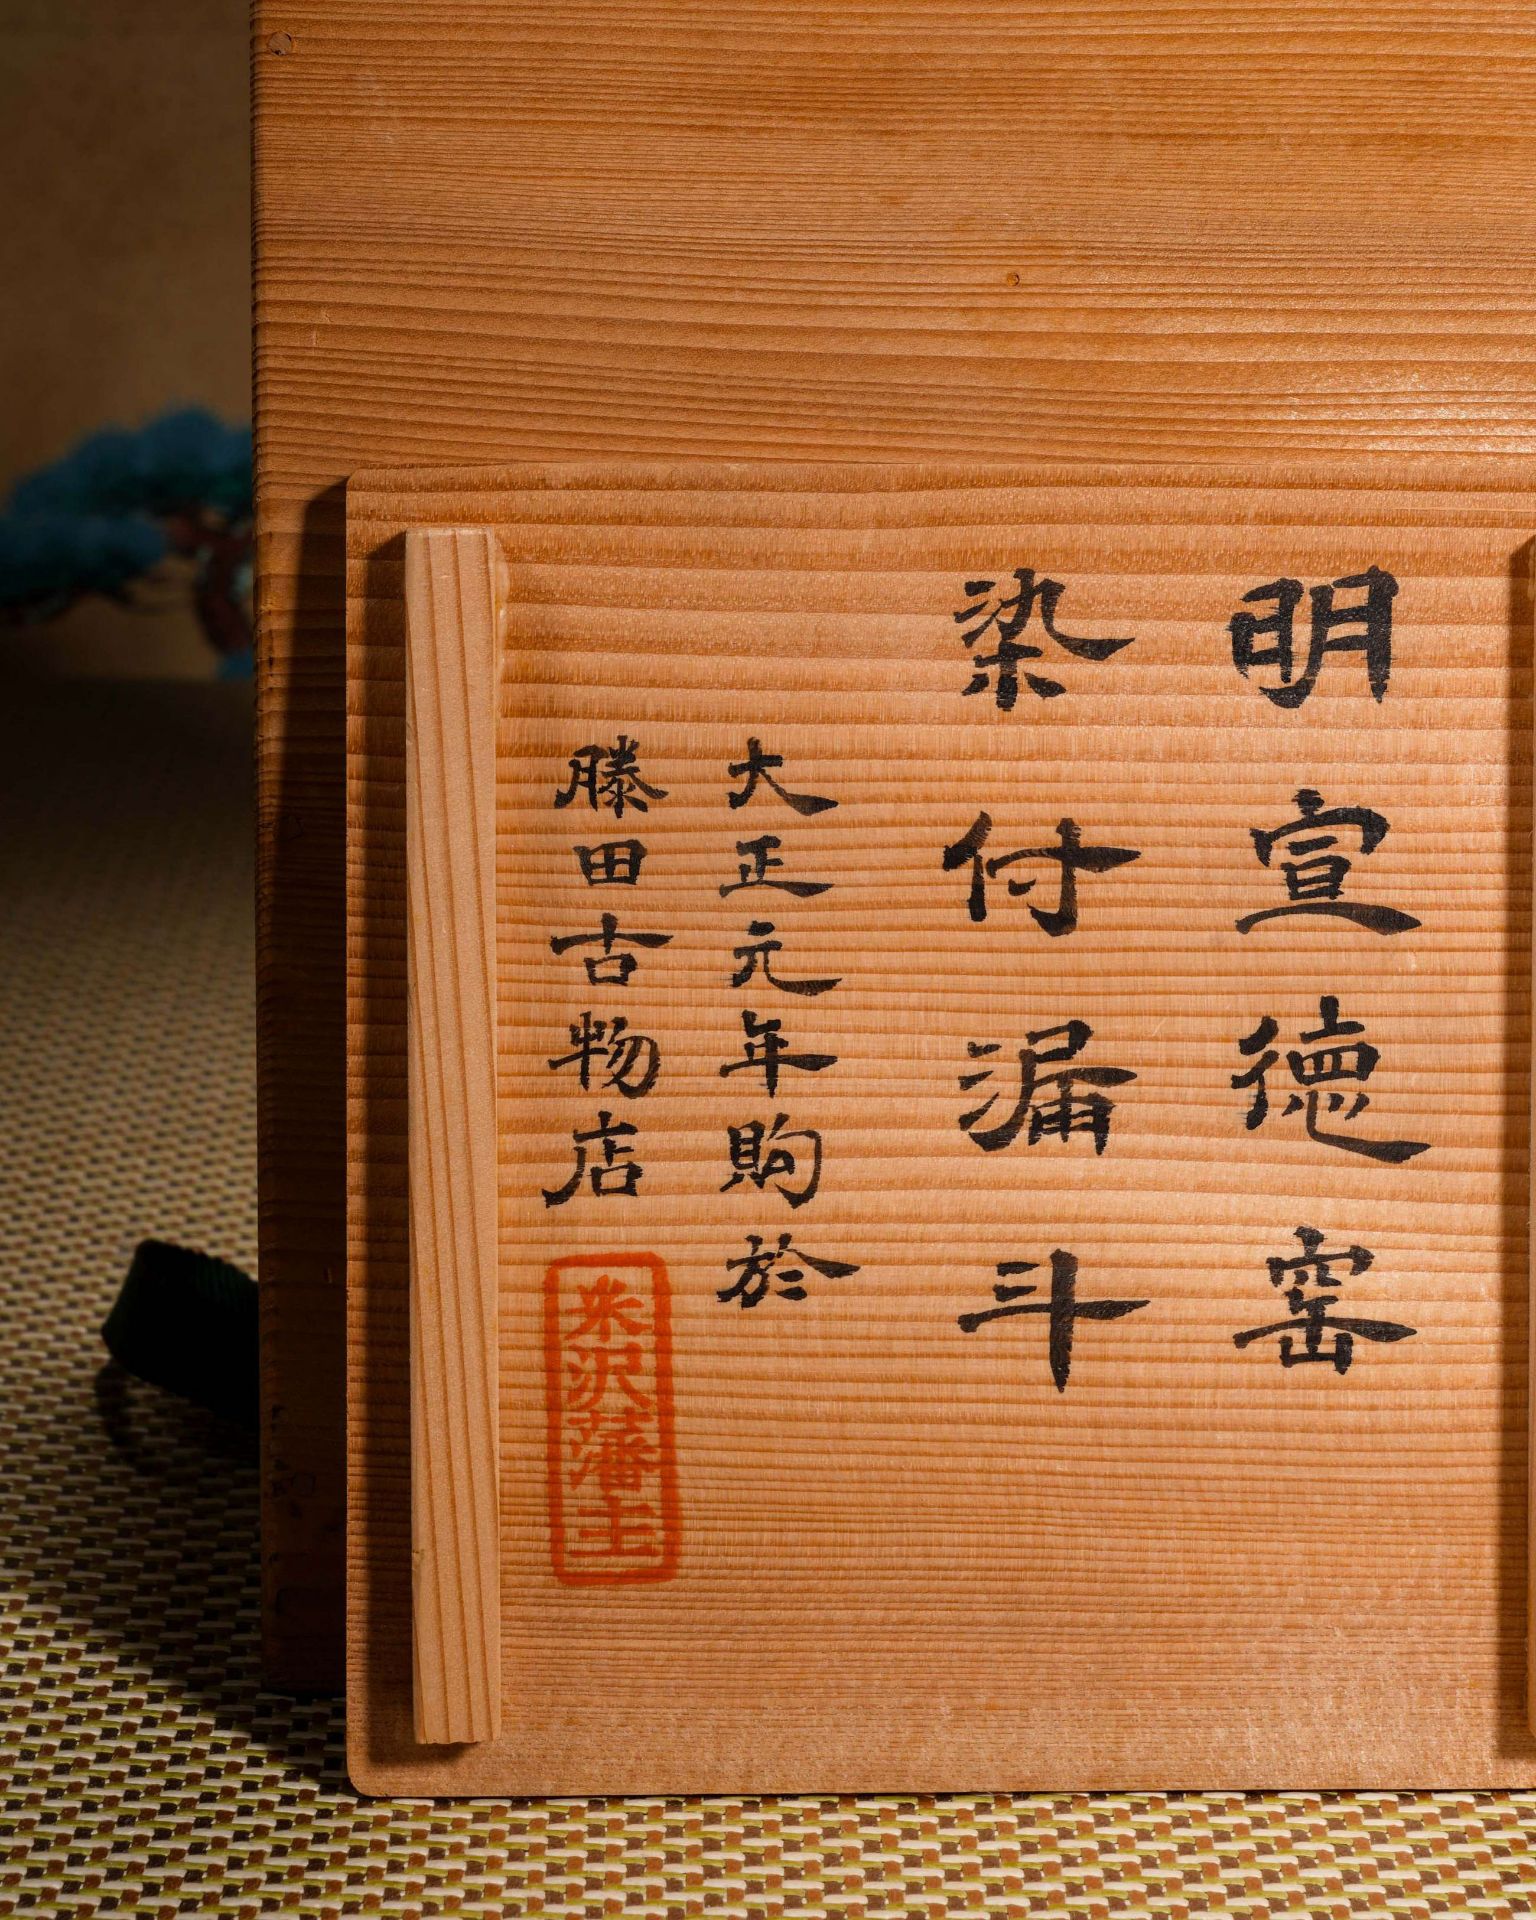 明宣徳窑
染付漏斗
大正元年购於
藤田古物店
米沢藩主